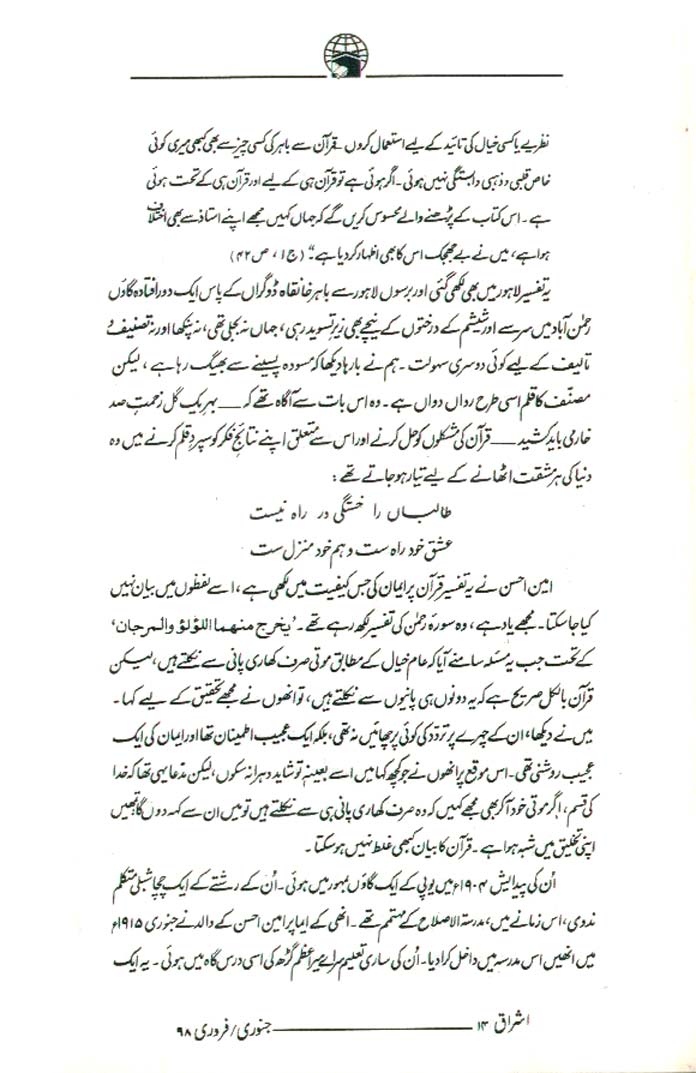 نظریے یا کسی خیال کی تائید کے لیے استعمال کروں۔ قرآن سے باہر کی کسی چیز سے بھی کبھی میری کوئی
خاص قلبی و ذہنی وابستگی نہیں ہوئی۔ اگر ہوئی ہے تو قرآن ہی کے لیے اور قرآن ہی کے تحت ہوئی
ہے۔ اس کتاب کے پڑھنے والے محسوس کریں گے کہ جہاں کہیں مجھے اپنے استاذ سے بھی اختلاف
ہوا ہے، میں نے بے جھجک اس کا بھی اظہار کر دیا ہے۔“ (ج ۱، ص ۴۲)
یہ تفسیر لاہور میں بھی لکھی گئی اور برسوں لاہور سے باہر خانقاہ ڈوگراں کے پاس ایک دور افتادہ گاؤں
رحمٰن آباد میں سرسے اور شیشم کے درختوں کے نیچے بھی زیر تسوید رہی، جہاں نہ بجلی تھی، نہ پنکھا اور نہ تصنیف و
تالیف کے لیے کوئی دوسری سہولت۔ ہم نے بارہا دیکھا کہ مسودہ پسینے سے بھیگ رہا ہے، لیکن
مصنّف کا قلم اسی طرح رواں دواں ہے۔ وہ اس بات سے آگاہ تھے کہ ــــ بہر یک گل زحمتِ صد
خار می باید کشید ــــ قرآن کی مشکلوں کو حل کرنے اور اس سے متعلق اپنے نتائجِ فکر کو سپردِ قلم کرنے میں وہ
دنیا کی ہر مشقت اٹھانے کے لیے تیار ہو جاتے تھے:
طالباں را خستگی در راہ نیست
عشق خود راہ ست و ہم خود منزل ست
امین احسن نے یہ تفسیر قرآن پر ایمان کی جس کیفیت میں لکھی ہے، اسے لفظوں میں بیان نہیں
کیا جا سکتا۔ مجھے یاد ہے، وہ سورۂ رحمٰن کی تفسیر لکھ رہے تھے۔ ’یخرج منھما اللؤلؤ والمرجان‘
کے تحت جب یہ مسئلہ سامنے آیا کہ عام خیال کے مطابق موتی صرف کھاری پانی سے نکلتے ہیں، لیکن
قرآن بالکل صریح ہے کہ یہ دونوں ہی پانیوں سے نکلتے ہیں، تو انھوں نے مجھے تحقیق کے لیے کہا۔
میں نے دیکھا، ان کے چہرے پر تردّد کی کوئی پرچھائیں نہ تھی، بلکہ ایک عجیب اطمینان تھا اور ایمان کی ایک
عجیب روشنی تھی۔ اس موقع پر انھوں نے جو کچھ کہا میں اسے بعینہٖ تو شاید دہرا نہ سکوں، لیکن مدّعا یہی تھا کہ خدا
کی قسم، اگر موتی خود آ کر بھی مجھے کہیں کہ وہ صرف کھاری پانی ہی سے نکلتے ہیں تو میں ان سے کہہ دوں گا تمھیں
اپنی تخلیق میں شبہ ہوا ہے۔ قرآن کا بیان کبھی غلط نہیں ہو سکتا۔
اُن کی پیدایش ۱۹۰۴ء میں یوپی کے ایک گاؤں بمہور میں ہوئی۔ اُن کے رشتے کے ایک چچا شبلی متکلم
ندوی، اس زمانے میں، مدرسۃ الاصلاح کے مہتمم تھے۔ انھی کے ایما پر امین احسن کے والد نے جنوری ۱۹۱۵ء
میں انھیں اس مدرسہ میں داخل کرا دیا۔ اُن کی ساری تعلیم سراے میر اعظم گڑھ کی اسی درس گاہ میں ہوئی۔ یہ ایک
اشراق ۱۴ ــــــــــ جنوری/فروری ۹۸